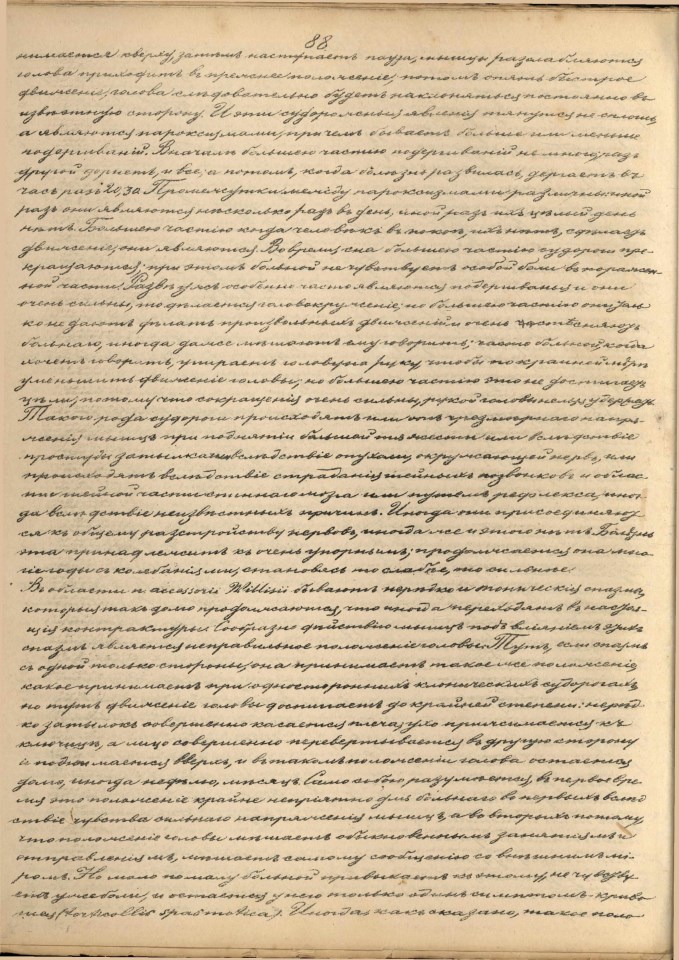 88
нимается кверху, затѣмъ наступаетъ пауза, мышцы разслабляются
голова приходитъ въ прежнее положеніе, потомъ опять быстрое
движеніе; голова слѣдовательно будетъ наклоняться постоянно въ
извѣстную сторону. И эти судорожныя явленія тянутся не сплошь,
а являются пароксизмами, при чемъ бываетъ больше или меньше
подергиваній. Вначалѣ большею частію подергиваній не много; разъ
другой дернетъ, и все; а потомъ, когда болѣзнь развилась, дергаетъ въ
часъ разъ 20, 30. Промежутки между пароксизмами различны: иной
разъ они являются нѣсколько разъ въ день, иной разъ ихъ цѣлый день
нѣтъ. Большею частію когда человѣкъ въ покоѣ, ихъ нѣтъ, сдѣлаетъ
движеніе, они являются. Во время сна большею частію судороги пре-
кращаются; при этомъ больной не чувствуетъ особой боли въ поражен-
ной части. Развѣ ужъ особенно часто являются подергиванья и они
очень сильны, то дѣлается головокруженіе; но большею частію они толь
ко не даютъ дѣлать произвольныхъ движеній и очень стѣсняютъ
больнаго, иногда даже мѣшаютъ ему говорить; часто больной, когда
хочетъ говорить, упираетъ головую руку чтобы по крайней мѣрѣ
уменьшить движеніе головы; но большею частію это не достигаетъ
цѣли, потому что сокращенія очень сильны, рукой головы нельзя удержать
Такого рода судороги происходятъ или отъ чрезмѣрнаго напря-
женія мышцъ при поднятіи большей тяжести или вслѣдствіе
простуды затылка или вслѣдствіе опухоли, окружающей нервъ, или
происходятъ вслѣдствіе страданія шейныхъ позвонковъ и облас-
ти шейной части спиннаго мозга или путемъ рефлекса, иног-
да вслѣдствіе неизвѣстныхъ причинъ. Иногда они присоединяют
ся къ общему разстройству нервовъ, иногда же и этого нѣтъ. Болѣзнь
эта принадлежитъ къ очень упорнымъ; продолжается она мно-
гіе годы съ колебаніями, становясь то слабѣе, то сильнѣе.
Въ области n. accessorii Willisii бываютъ нерѣдко и тоническія спазмы,
которыя такъ долго продолжаются, что иногда переходятъ въ насто-
щія контрактуры. Сообразно дѣйствію мышцъ подъ вліяніемъ этихъ
спазмъ является неправильное положеніе головы. Тутъ, если спазмъ
съ одной только стороны, она принимаетъ такое же положеніе,
какое принимаетъ при одностороннихъ клоническихъ судорогахъ,
но тутъ движеніе головы достигаетъ до крайней степени: нерѣд-
ко затылокъ совершенно касается плеча, ухо прижимается къ
ключицѣ, а лицо совершенно перевертывается въ другую сторону
и поднимается вверхъ, и въ такомъ положеніи голова остается
долго, иногда недѣлю, мѣсяцъ. Само собою разумѣется, въ первое вре-
мя это положеніе крайне непріятно для больнаго во первыхъ вслѣд
ствіе чувства сильнаго напряженія мышцъ, а во вторыхъ потому
что положеніе головы мѣшаетъ обыкновеннымъ занятіямъ и
отправленіямъ, мѣшаетъ самому сообщенію со внѣшнимъ мі-
ромъ. Но мало по малу больной привыкаетъ къ этому, не чувству
етъ уже боли, и остается у него только одинъ симптомъ - криво
шея (torticollis spasmotica). Иногда, какъ сказано, такое поло-